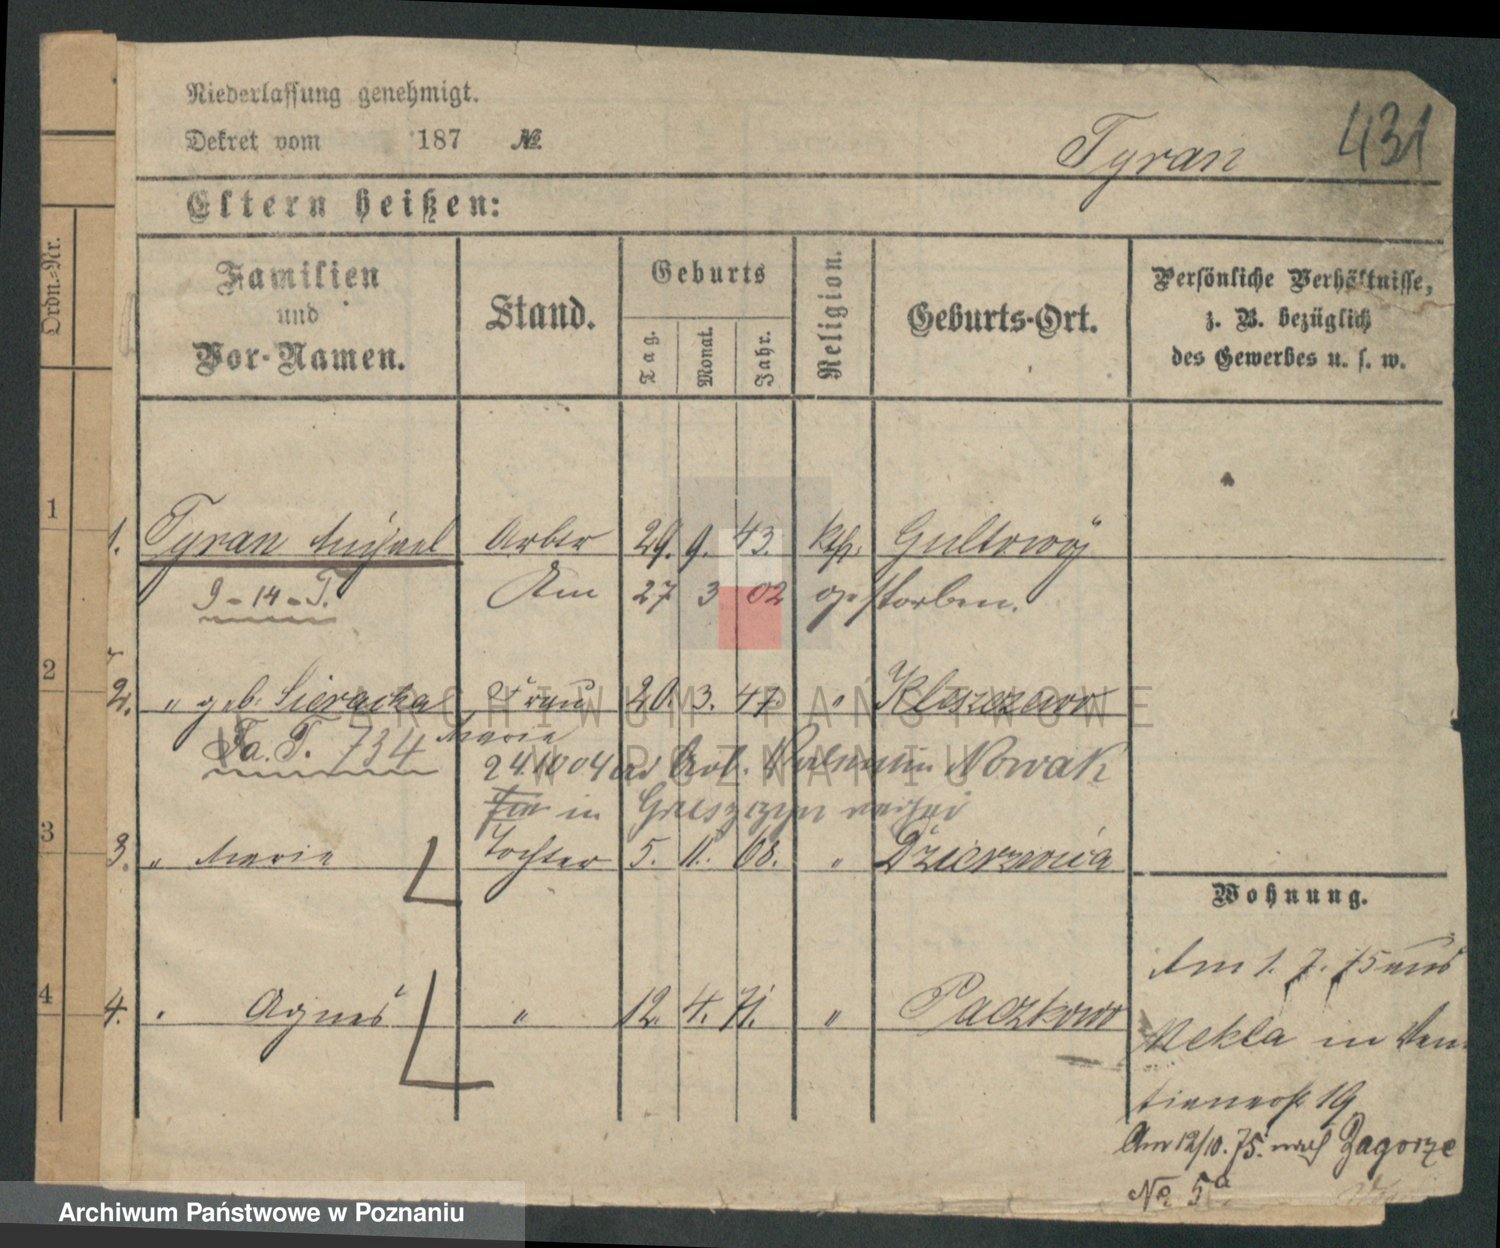 Niederlassung genehmigt.
Dekret vom 187 №
Tyran 431
Eltern heißen:
Ordn.-Nr.
Familien und Vor-Namen.
Stand.
Geburts
Tag. Monat. Jahr.
Religion.
Geburts-Ort.
Persönliche Verhältnisse, z. B. bezüglich des Gewerbes u. s. w.
1
1. Tyran Michael Arbtr 29. 9. 43. kth. Gultowy
9-14-T. Am 27 3 02 gestorben.
2
2. " geb. Sieracka Frau 20. 3. 47. " Kleszczewo
Fa. T. 734 Marie
24.10 04 Nowak
in
3
3. " Marie Tochter 5. 11. 68. "
Wohnung.
Am 1. 7. 75 aus
4
4. " Agnes " 12. 4. 71. " Paczkowo
Nekla in
19
Am 12/10. 75. nach Zagorze
No 5a
ARCHIWUM PAŃSTWOWE
W POZNANIU
Archiwum Państwowe w Poznaniu